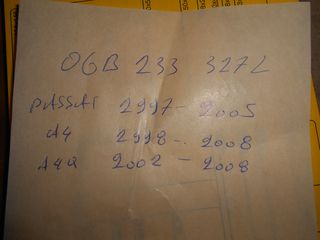 OGB 233 327L
PASSAT 2997 - 2005
A4 2998 - 2008
A4Q 2002 - 2008